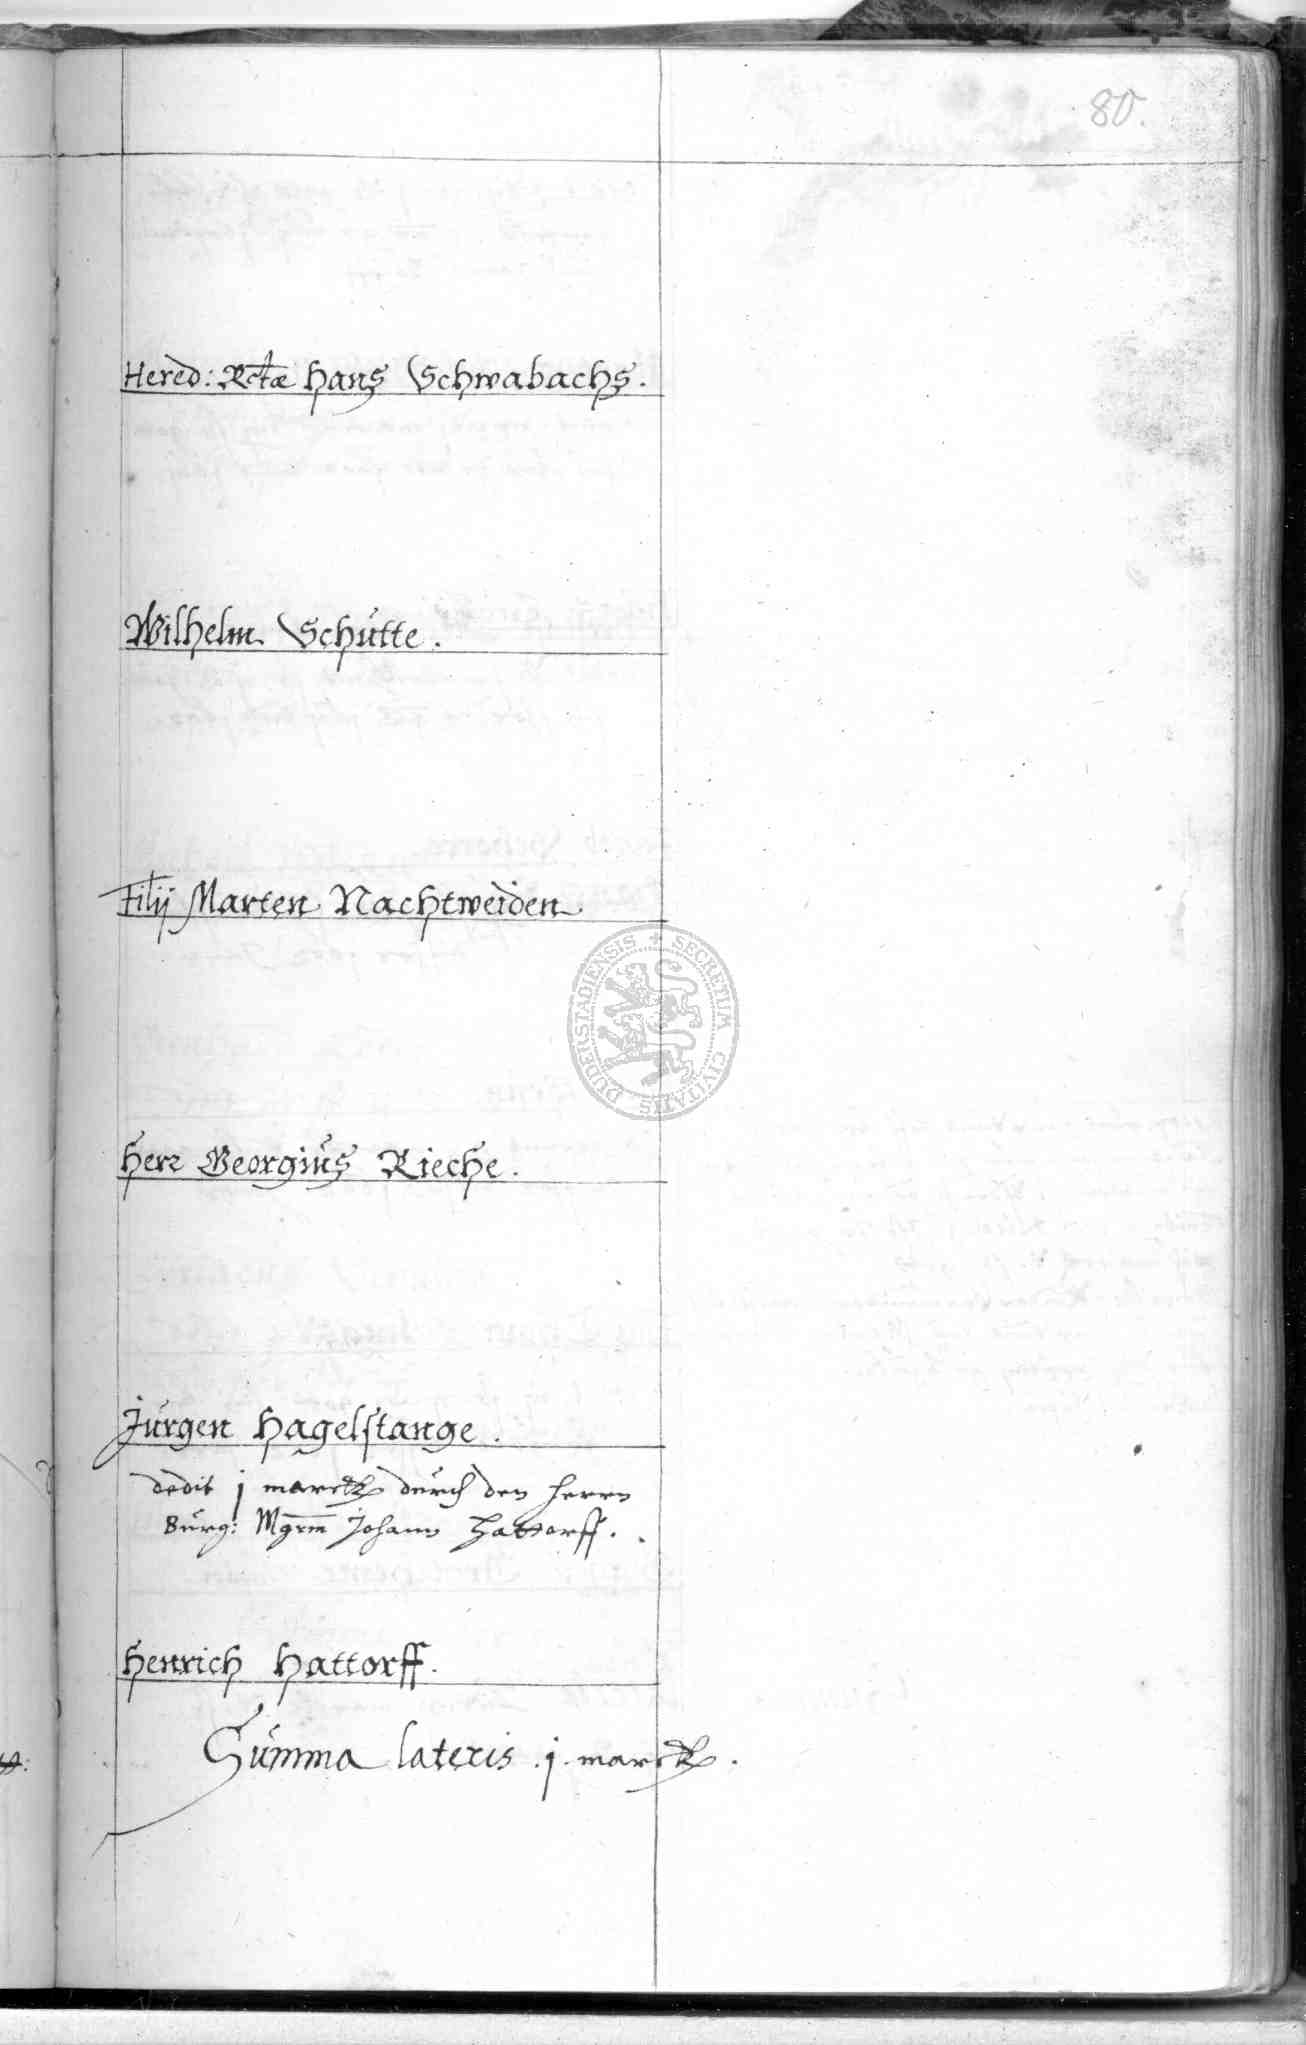 80.
Hered: Rctæ Hans Schwabachs.
Wilhelm Schütte.
Filij Marten Nachtweiden
SECRETUM CIVITATIS DUDERSTADIENSIS
Herr Georgius Rieche.
Jürgen Hagelstange.
dedit j marck durch den Herrn
Burg: Mgrm Johann Hattorff.
Henrich Hattorff.
Summa lateris j marck.